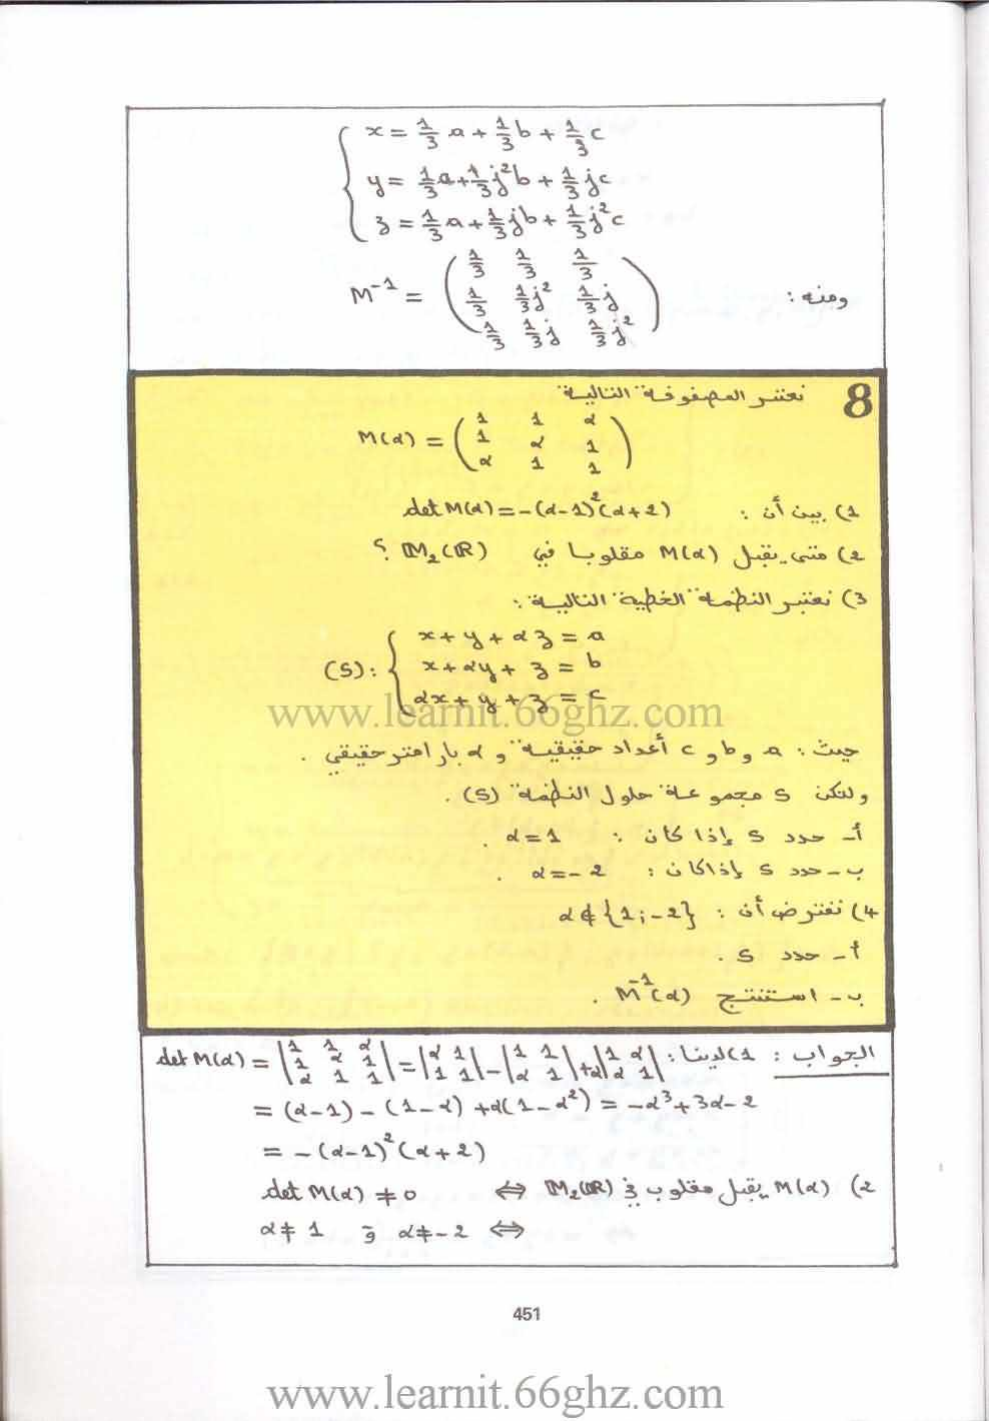 x = 1/3 a + 1/3 b + 1/3 c
y = 1/3 a + 1/3 j²b + 1/3 jc
z = 1/3 a + 1/3 jb + 1/3 j²c
ومنه : M⁻¹ = ( 1/3 1/3 1/3
1/3 1/3 j² 1/3 j
1/3 1/3 j 1/3 j² )
8 نعتبر المصفوفة التالية
M(α) = ( 1 1 α
1 α 1
α 1 1 )
1) بين أن : det M(α) = -(α-1)²(α+2)
2) متى يقبل M(α) مقلوبا في M₂(ℝ) ؟
3) نعتبر النظمة الخطية التالية :
x + y + αz = a
(S) : { x + αy + z = b
αx + y + z = c
www.learnit.66ghz.com
حيث : a و b و c أعداد حقيقية و α بارامتر حقيقي .
ولتكن S مجموعة حلول النظمة (S) .
أ- حدد S إذا كان : α = 1 .
ب- حدد S إذا كان : α = -2 .
4) نفترض أن : α ∉ {1 ; -2}
أ- حدد S .
ب- استنتج M⁻¹(α) .
الجواب : 1) لدينا : det M(α) = |1 1 α ; 1 α 1 ; α 1 1| = |α 1 ; 1 1| - |1 1 ; α 1| + α|1 α ; α 1|
= (α-1) - (1-α) + α(1-α²) = -α³+3α-2
= -(α-1)²(α+2)
2) M(α) يقبل مقلوب في M₂(ℝ) ⇔ det M(α) ≠ 0
⇔ α ≠ -2 و α ≠ 1
451
www.learnit.66ghz.com